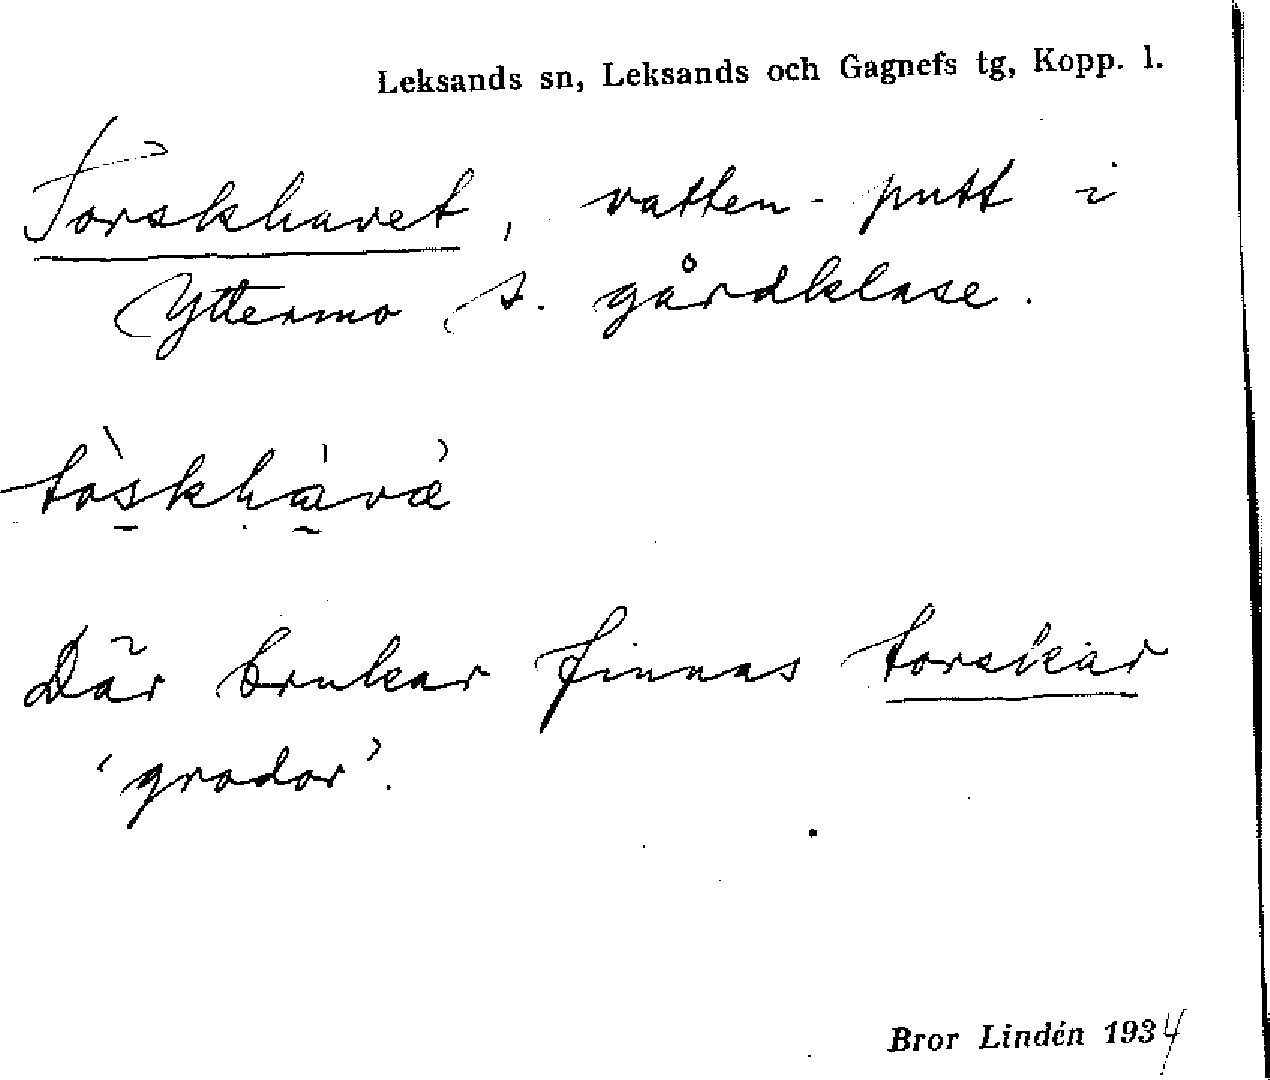 Leksands sn, Leksands och Gagnefs tg, Kopp. l.
Torskhavet, vatten-putt i
Yttermo s. gårdklase.
tòskhàvæ̀
Där brukar finnas torskar
'grodor'.
Bror Lindén 1934